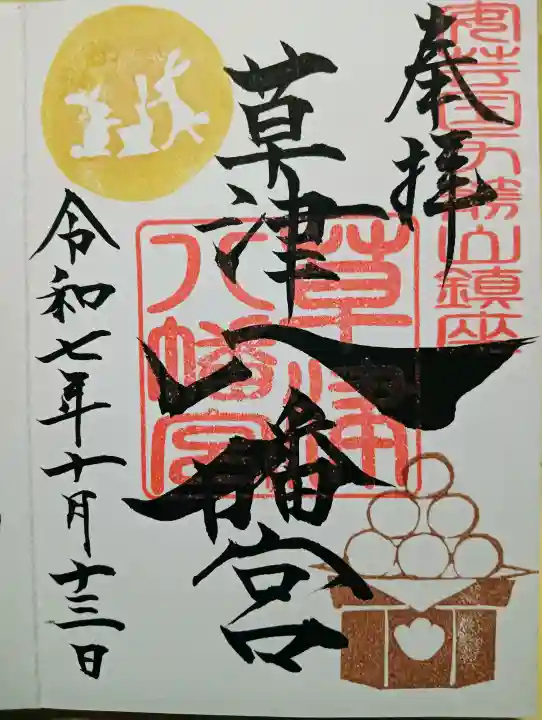 安芸国力勝山鎮座
奉拝
草津八幡宮
草津
八幡宮
令和七年十月十三日